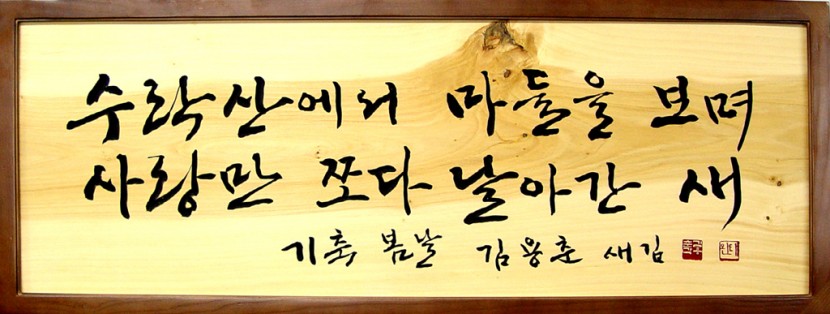 수락산에서 마들을 보며
사랑만 쪼다 날아간 새
기축 봄날 김용춘 새김